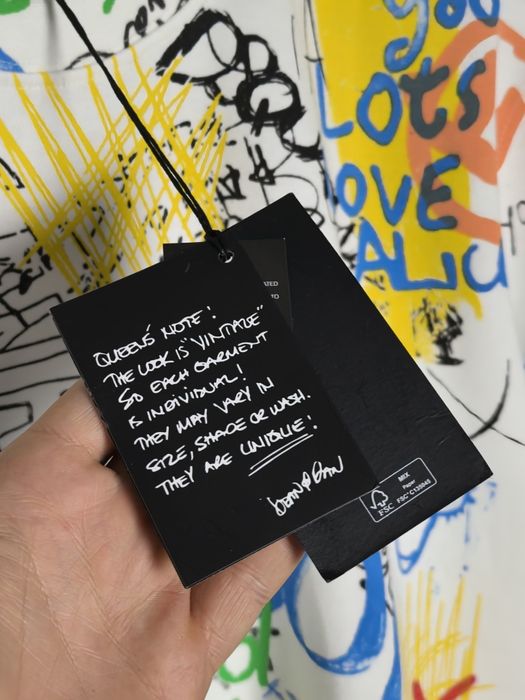 you
LOts
LOVE
QUEENS' NOTE!
THE LOOK IS "VINTAGE"
SO EACH GARMENT
IS INDIVIDUAL!
THEY MAY VARY IN
SIZE, SHADE OR WASH.
THEY ARE UNIQUE!
DEAN & DAN
MIX
Paper
FSC
FSC® C135045